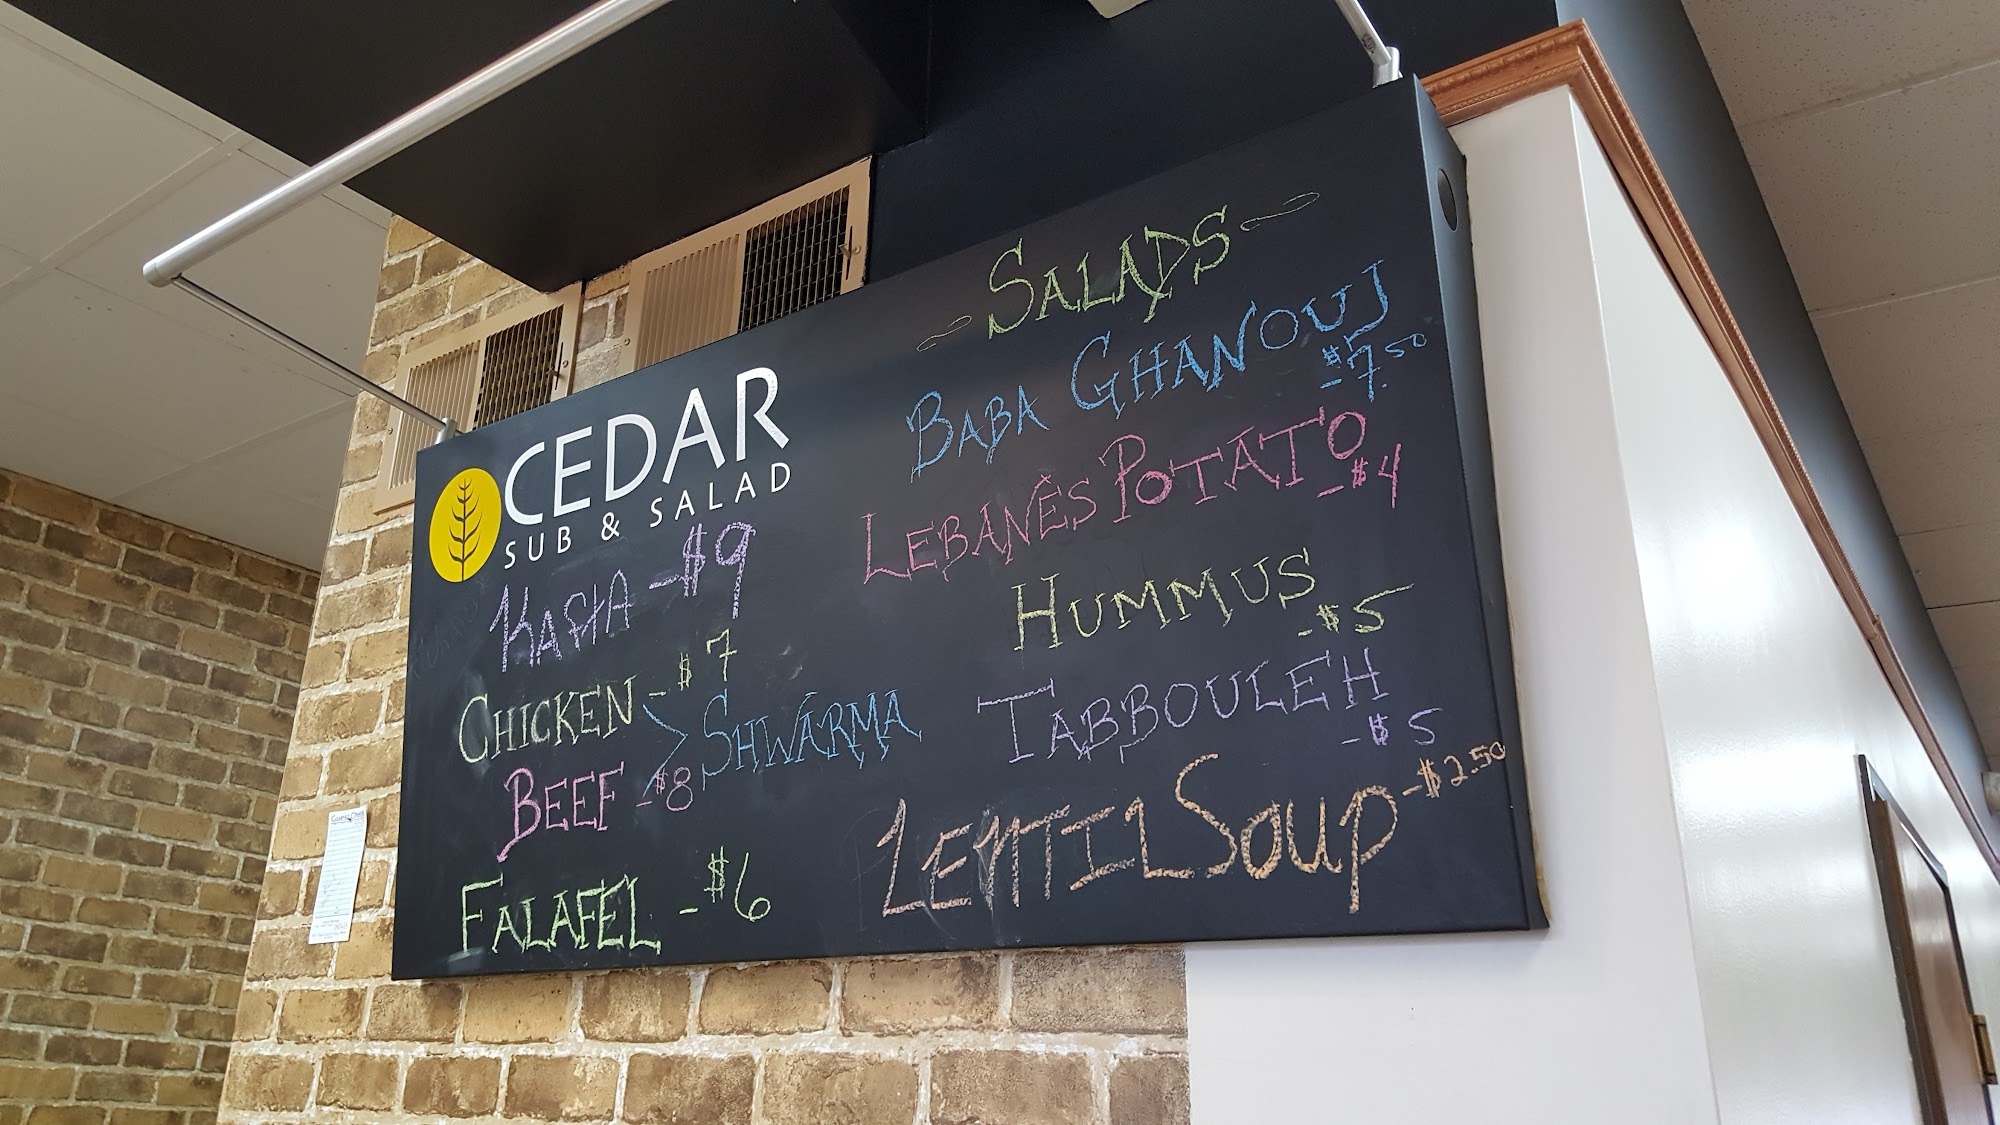 CEDAR
SUB & SALAD
KAFTA - $9
CHICKEN - $7
BEEF - $8
SHWARMA
FALAFEL - $6
SALADS
BABA GHANOUJ
- $7.50
LEBANES POTATO
- $4
HUMMUS
- $5
TABBOULEH
- $5
LENTIL SOUP - $2.50